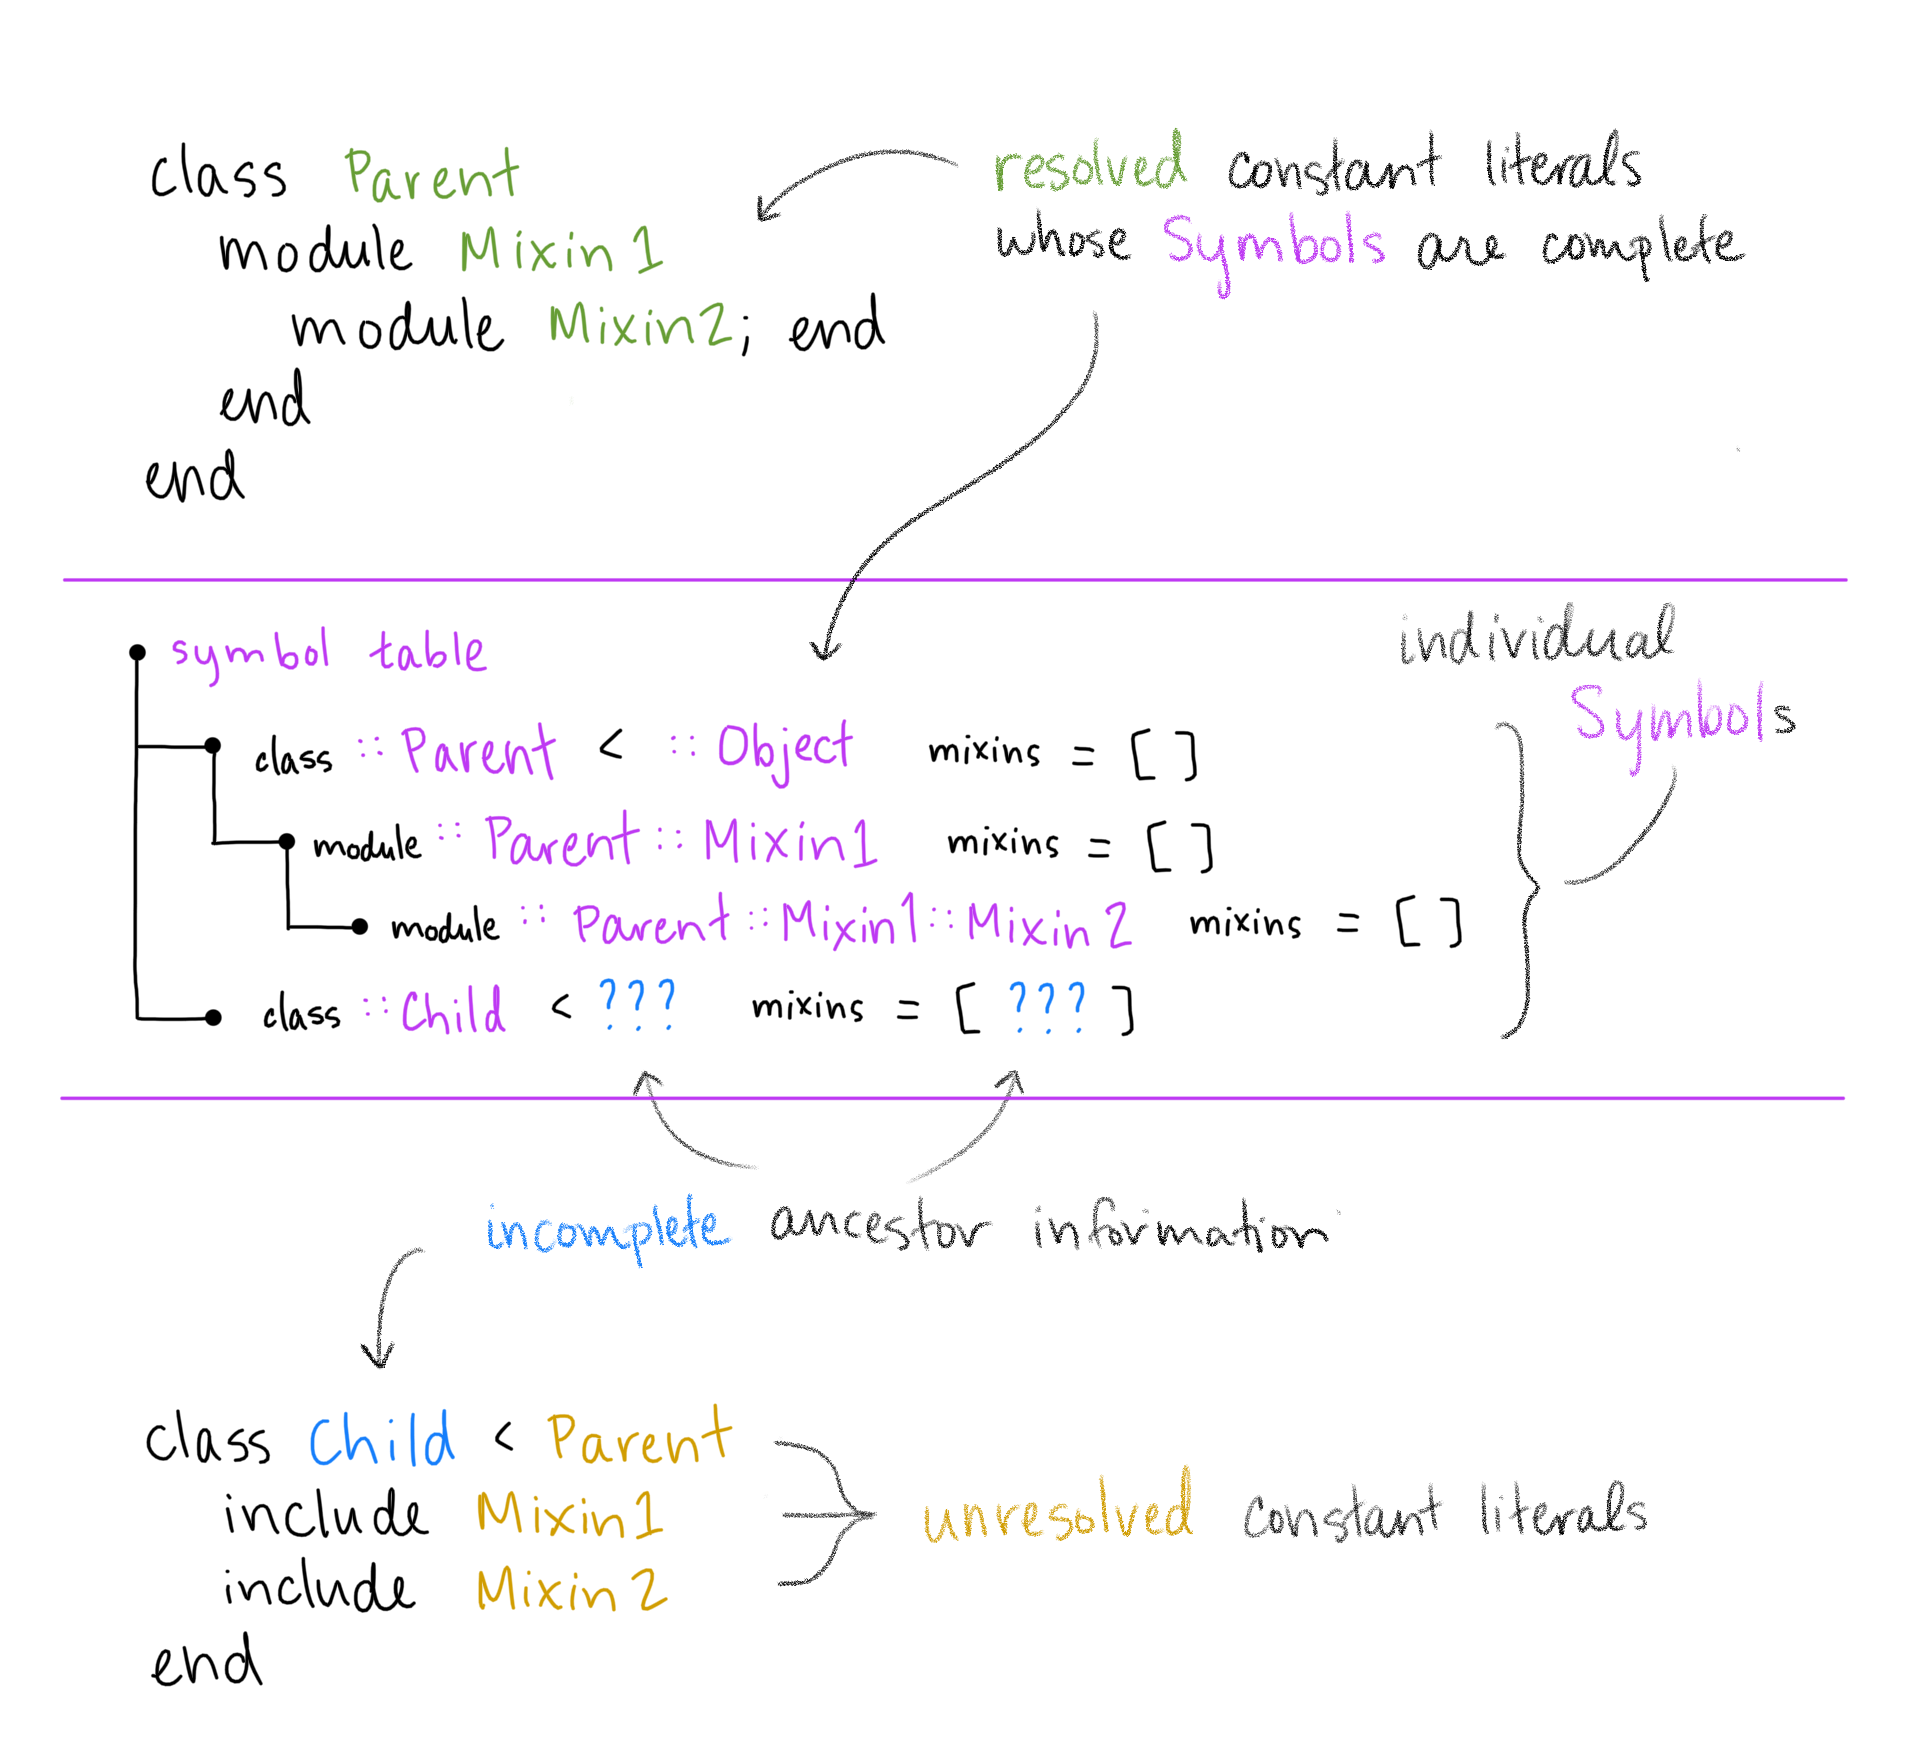 class Parent
module Mixin1
module Mixin2; end
end
end
resolved constant literals
whose Symbols are complete
symbol table
class ::Parent < ::Object mixins = [ ]
module ::Parent::Mixin1 mixins = [ ]
module ::Parent::Mixin1::Mixin2 mixins = [ ]
class ::Child < ??? mixins = [ ??? ]
individual
Symbols
incomplete ancestor information
class Child < Parent
include Mixin1
include Mixin2
end
unresolved constant literals